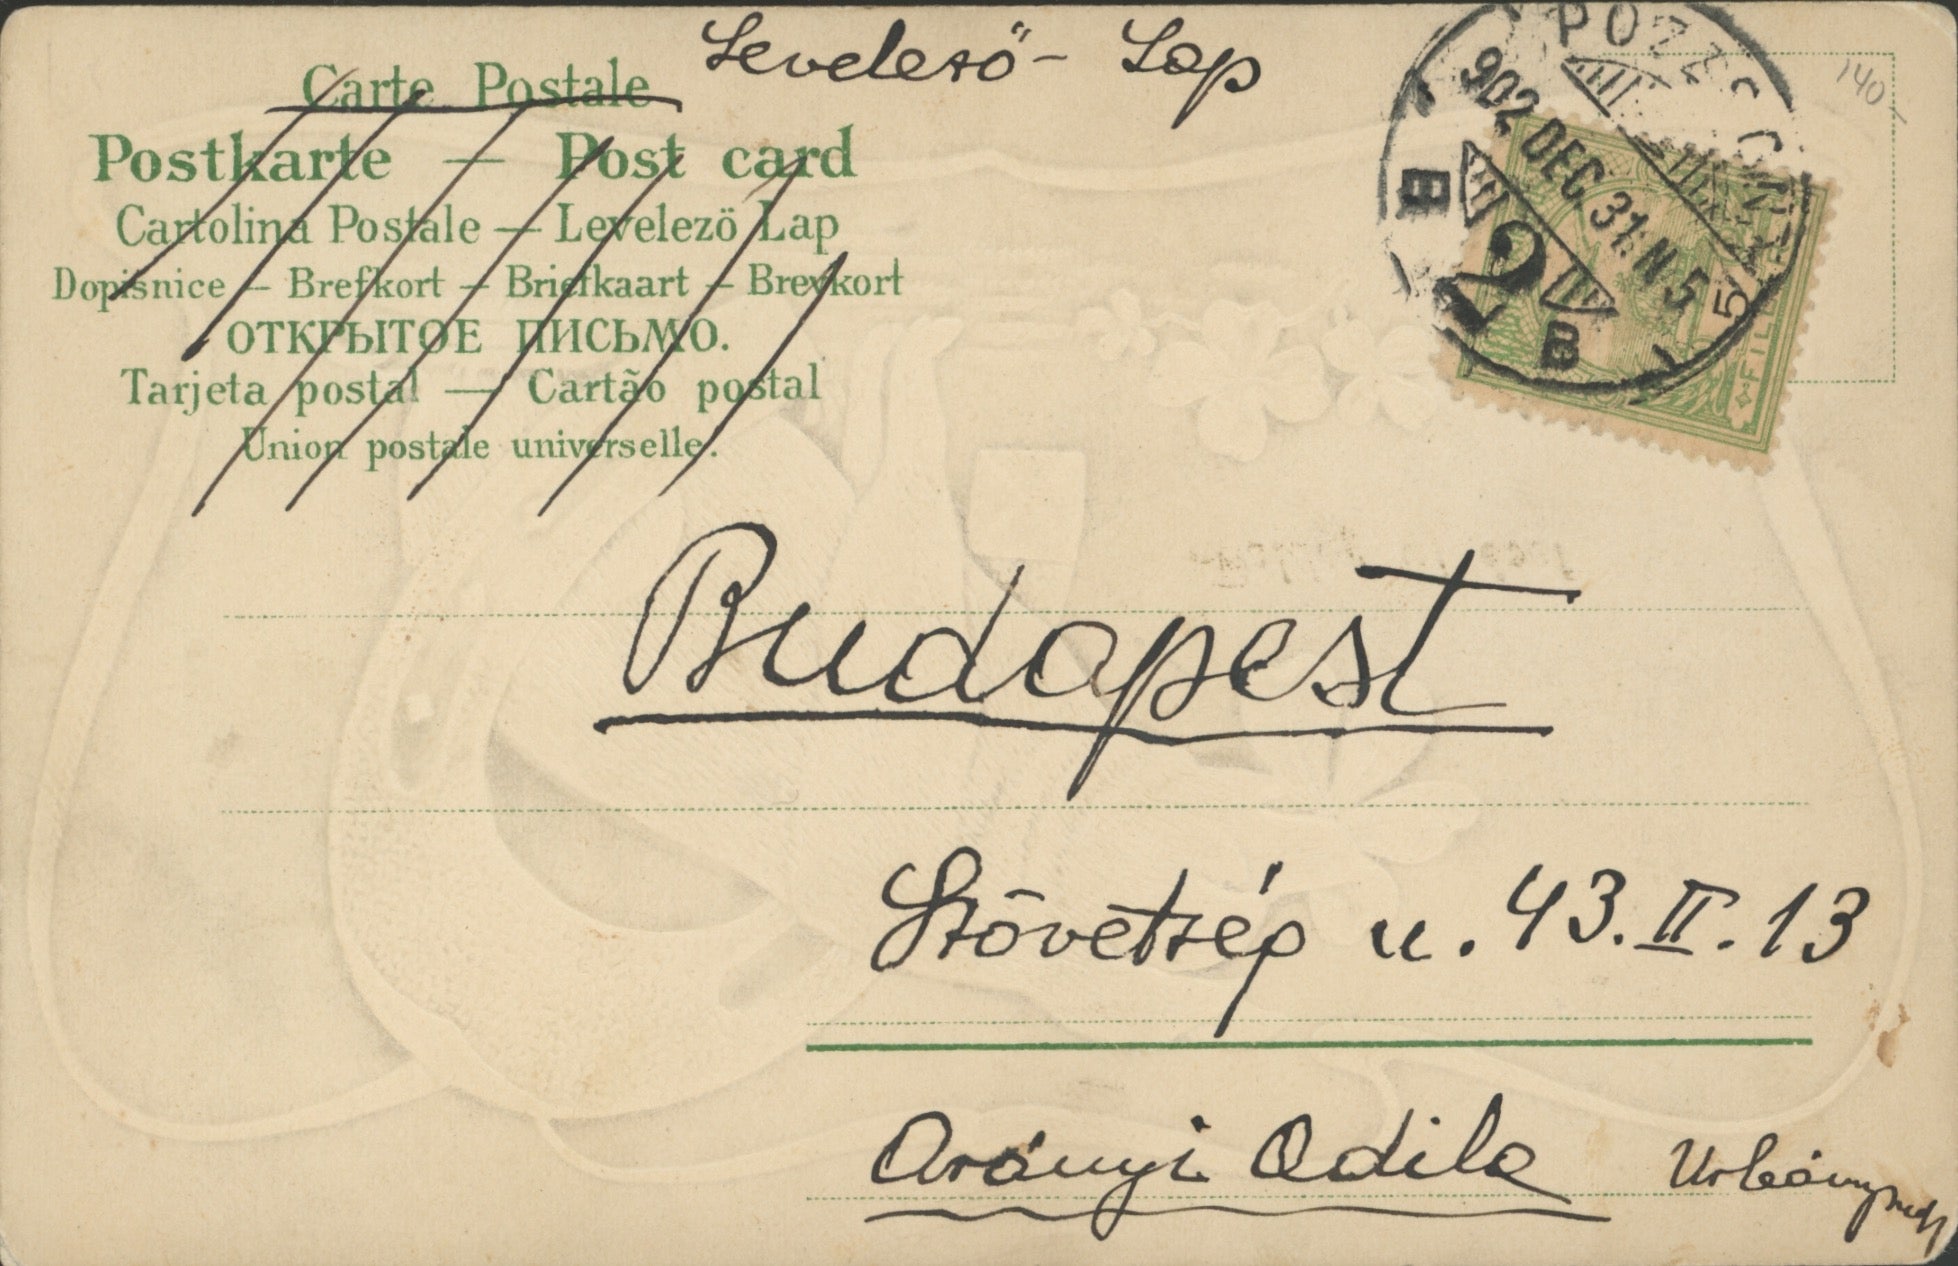 Levelező - Lap
Carte Postale
Postkarte — Post card
Cartolina Postale — Levelezö Lap
Dopisnice — Brefkort — Briefkaart — Brevkort
ОТКРЫТОЕ ПИСЬМО.
Tarjeta postal — Cartão postal
Union postale universelle.
POZSONY
902 DEC 31. N 5
B 2 B
5
FILLÉR
140
Budapest
Szövetség u. 43. II. 13
Arányi Odila